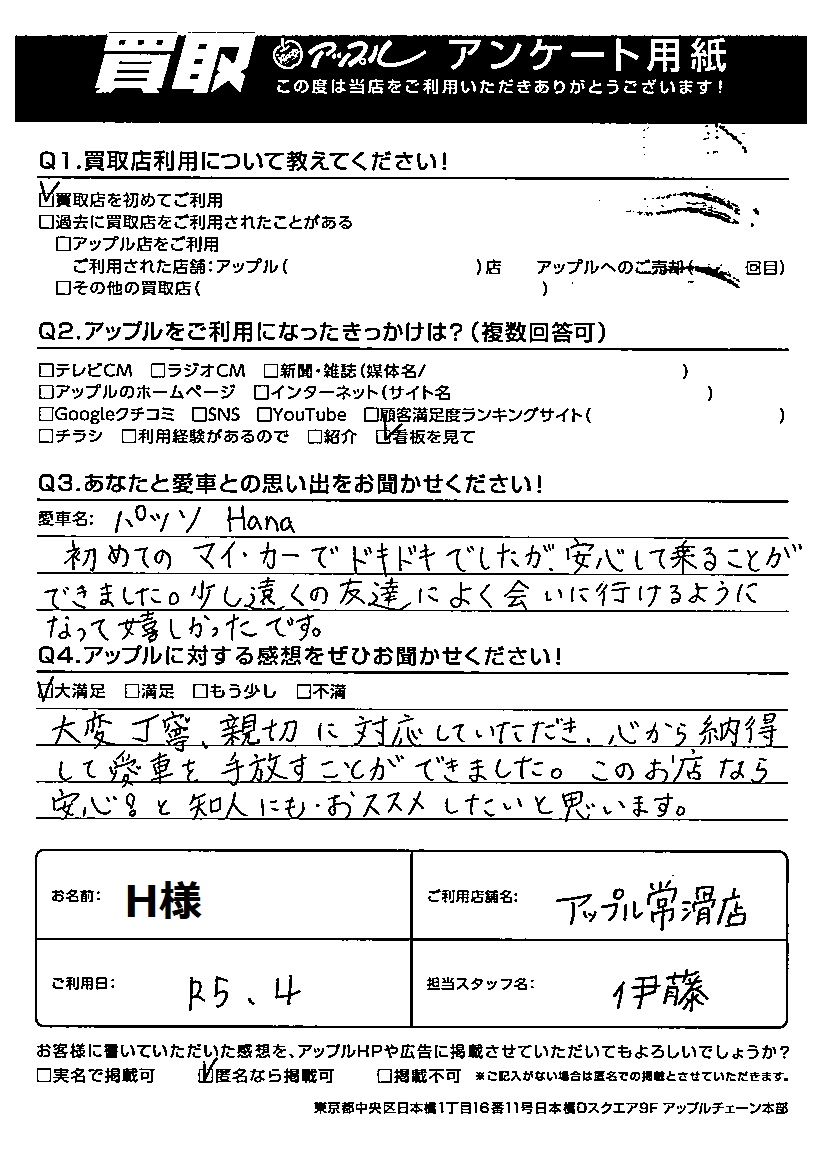 買取 アップル アンケート用紙
この度は当店をご利用いただきありがとうございます!
Q1.買取店利用について教えてください!
☑買取店を初めてご利用
□過去に買取店をご利用されたことがある
□アップル店をご利用
ご利用された店舗:アップル( )店 アップルへのご売却( 回目)
□その他の買取店( )
Q2.アップルをご利用になったきっかけは?(複数回答可)
□テレビCM □ラジオCM □新聞・雑誌(媒体名/ )
□アップルのホームページ □インターネット(サイト名 )
□Googleクチコミ □SNS □YouTube □顧客満足度ランキングサイト( )
□チラシ □利用経験があるので □紹介 ☑看板を見て
Q3.あなたと愛車との思い出をお聞かせください!
愛車名: パッソ Hana
初めての マイ・カーで ドキドキでしたが、安心して乗ることが
できました。少し遠くの友達によく会いに行けるように
なって嬉しかったです。
Q4.アップルに対する感想をぜひお聞かせください!
☑大満足 □満足 □もう少し □不満
大変丁寧、親切に対応していただき、心から納得
して愛車を手放すことができました。このお店なら
安心と知人にも・おススメしたいと思います。
お名前: H様 ご利用店舗名: アップル常滑店
ご利用日: R5、4 担当スタッフ名: 伊藤
お客様に書いていただいた感想を、アップルHPや広告に掲載させていただいてもよろしいでしょうか?
□実名で掲載可 ☑匿名なら掲載可 □掲載不可 ※ご記入がない場合は匿名での掲載とさせていただきます。
東京都中央区日本橋1丁目16番11号日本橋Dスクエア9F アップルチェーン本部